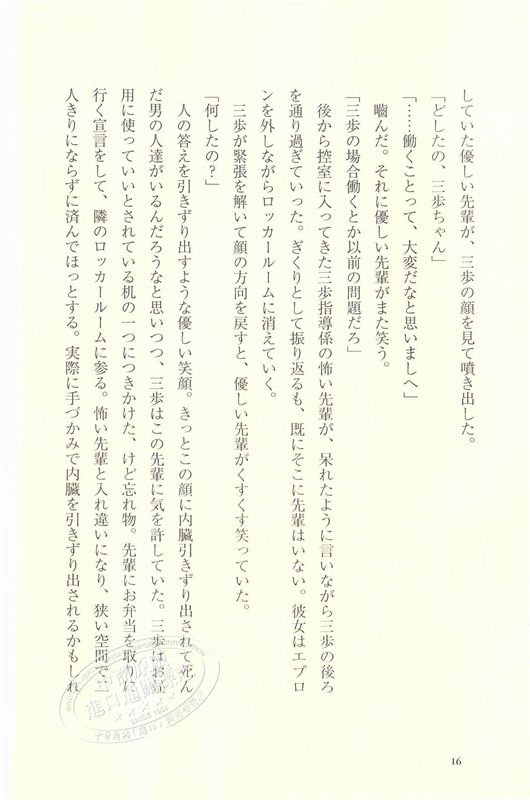 していた優しい先輩が、三歩の顔を見て噴き出した。
「どしたの、三歩ちゃん」
「……働くことって、大変だなと思いましへ」
噛んだ。それに優しい先輩がまた笑う。
「三歩の場合働くとか以前の問題だろ」
後から控室に入ってきた三歩指導係の怖い先輩が、呆れたように言いながら三歩の後ろ
を通り過ぎていった。ぎくりとして振り返るも、既にそこに先輩はいない。彼女はエプロ
ンを外しながらロッカールームに消えていく。
三歩が緊張を解いて顔の方向を戻すと、優しい先輩がくすくす笑っていた。
「何したの？」
人の答えを引きずり出すような優しい笑顔。きっとこの顔に内臓引きずり出されて死ん
だ男の人達がいるんだろうなと思いつつ、三歩はこの先輩に気を許していた。三歩はお昼
用に使っていいとされている机の一つにつきかけた、けど忘れ物。先輩にお弁当を取りに
行く宣言をして、隣のロッカールームに参る。怖い先輩と入れ違いになり、狭い空間で
人きりにならずに済んでほっとする。実際に手づかみで内臓を引きずり出されるかもしれ
16